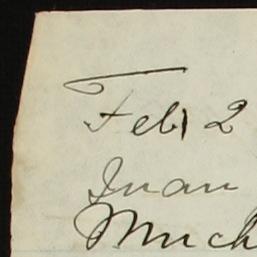 Feb 2
Juan
Much